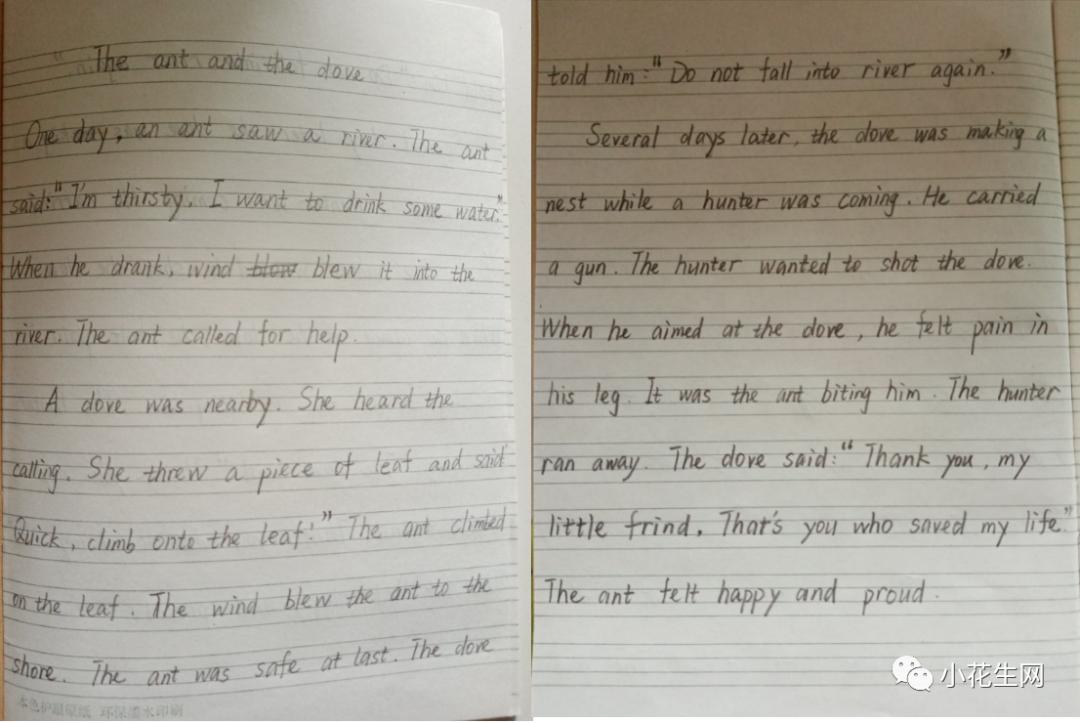 The ant and the dove
One day, an ant saw a river. The ant
said:"I'm thirsty, I want to drink some water."
When he drank, wind blow blew it into the
river. The ant called for help.
A dove was nearby. She heard the
calling. She threw a piece of leaf and said
Quick, climb onto the leaf!" The ant climbed
on the leaf. The wind blew the ant to the
shore. The ant was safe at last. The dove
本色护眼原纸 环保墨水印刷
told him:"Do not fall into river again."
Several days later, the dove was making a
nest while a hunter was coming. He carried
a gun. The hunter wanted to shot the dove.
When he aimed at the dove, he felt pain in
his leg. It was the ant biting him. The hunter
ran away. The dove said:"Thank you, my
little frind. That's you who saved my life."
The ant felt happy and proud.
小花生网